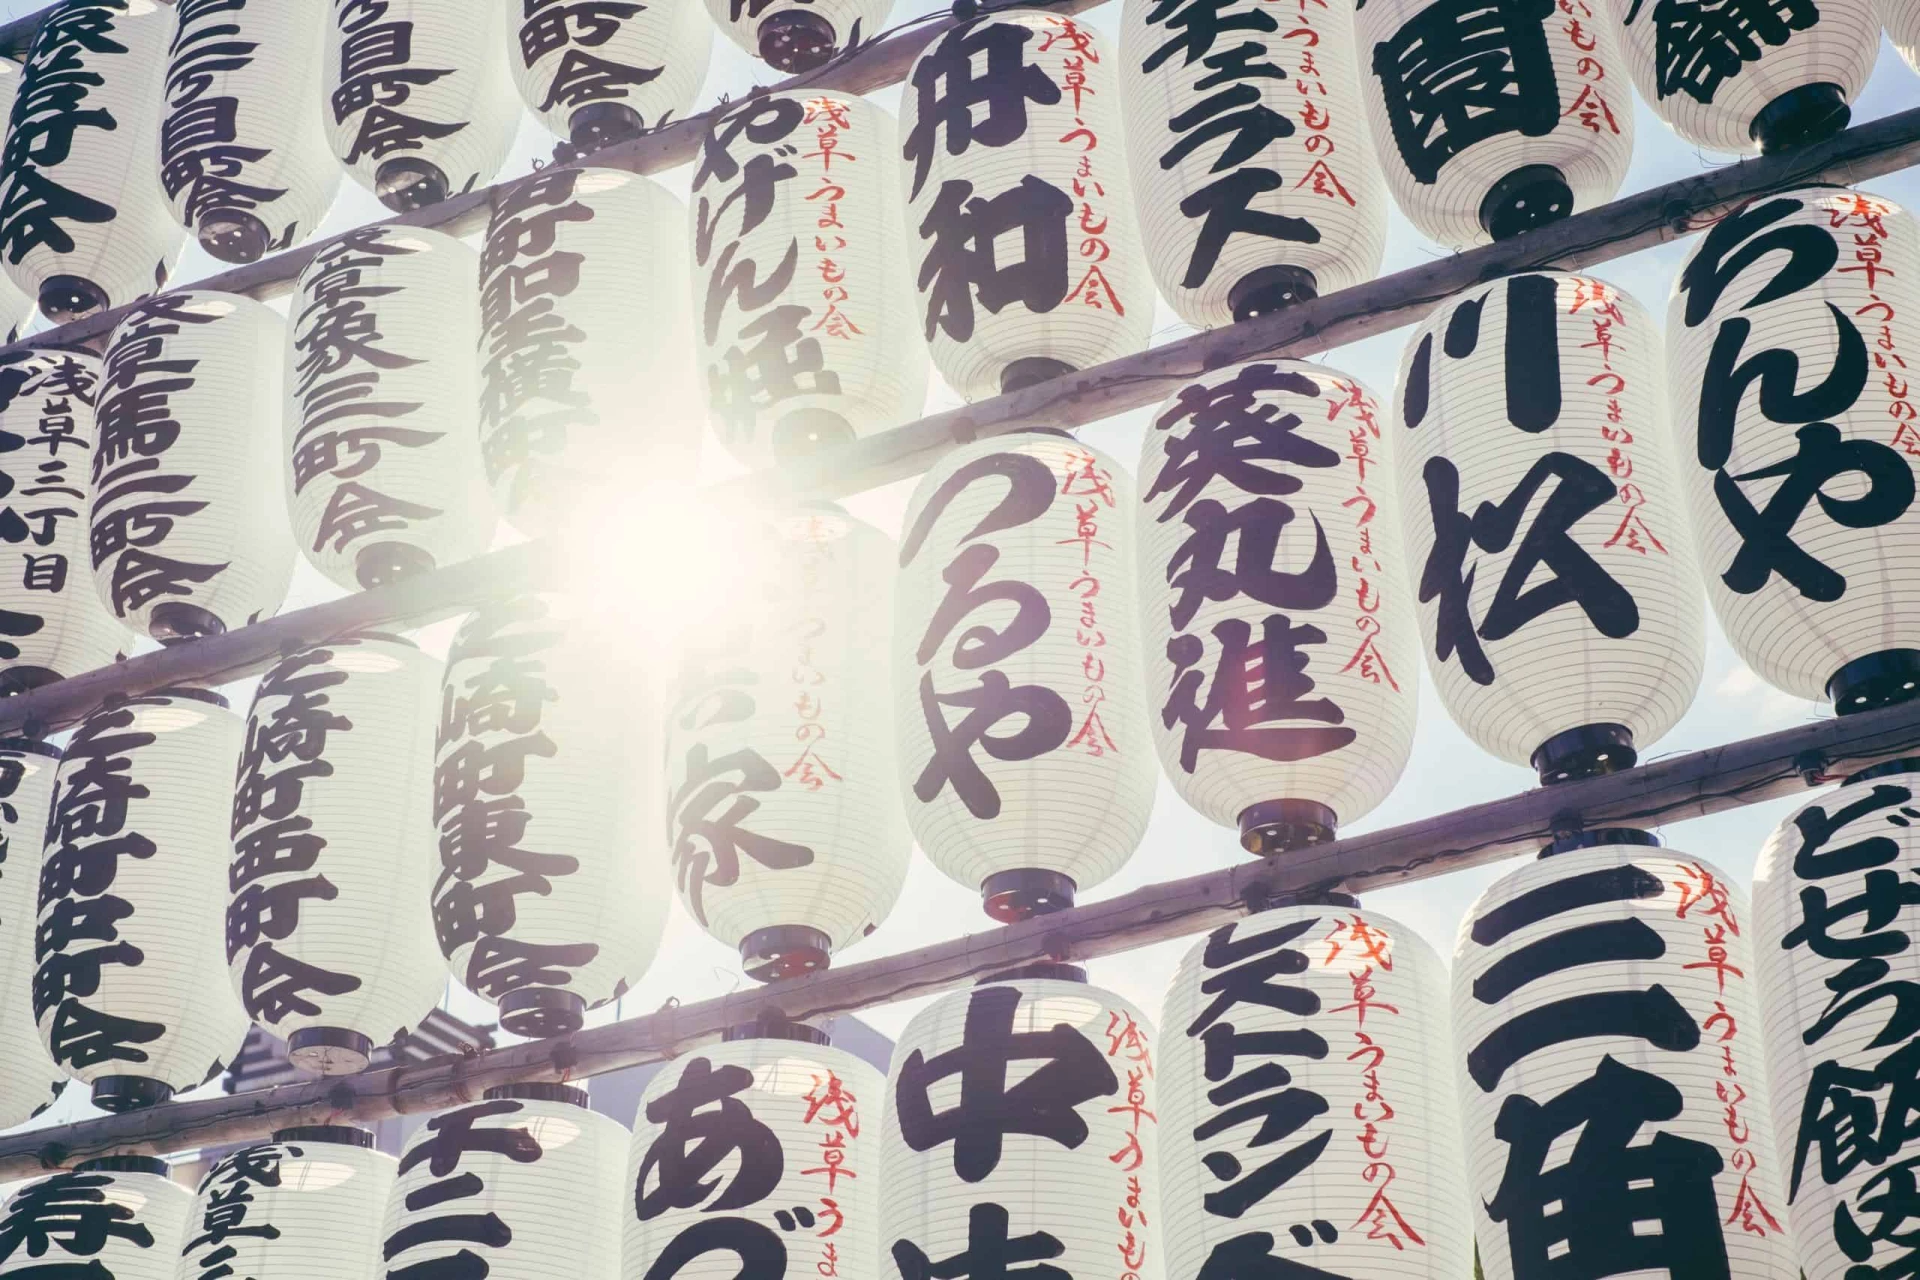 町会
三町目町会
三町目町会
町会
やげん堀
浅草うまいもの会
舟和
浅草うまいもの会
ェラス
うまいもの会
園
いもの会
浅草三丁目
浅草馬二町会
浅草象三町会
町聖横町会
つるや
浅草うまいもの会
葵丸進
浅草うまいもの会
川松
浅草うまいもの会
ちんや
浅草うまいもの会
芝崎町中町会
芝崎町西町会
芝崎町東町会
家
うまいもの会
寿
浅草
二
あづ
浅草うま
中
浅草うまいも
ストランベ
浅草うまいもの会
三角
浅草うまいもの会
どぜう飯田